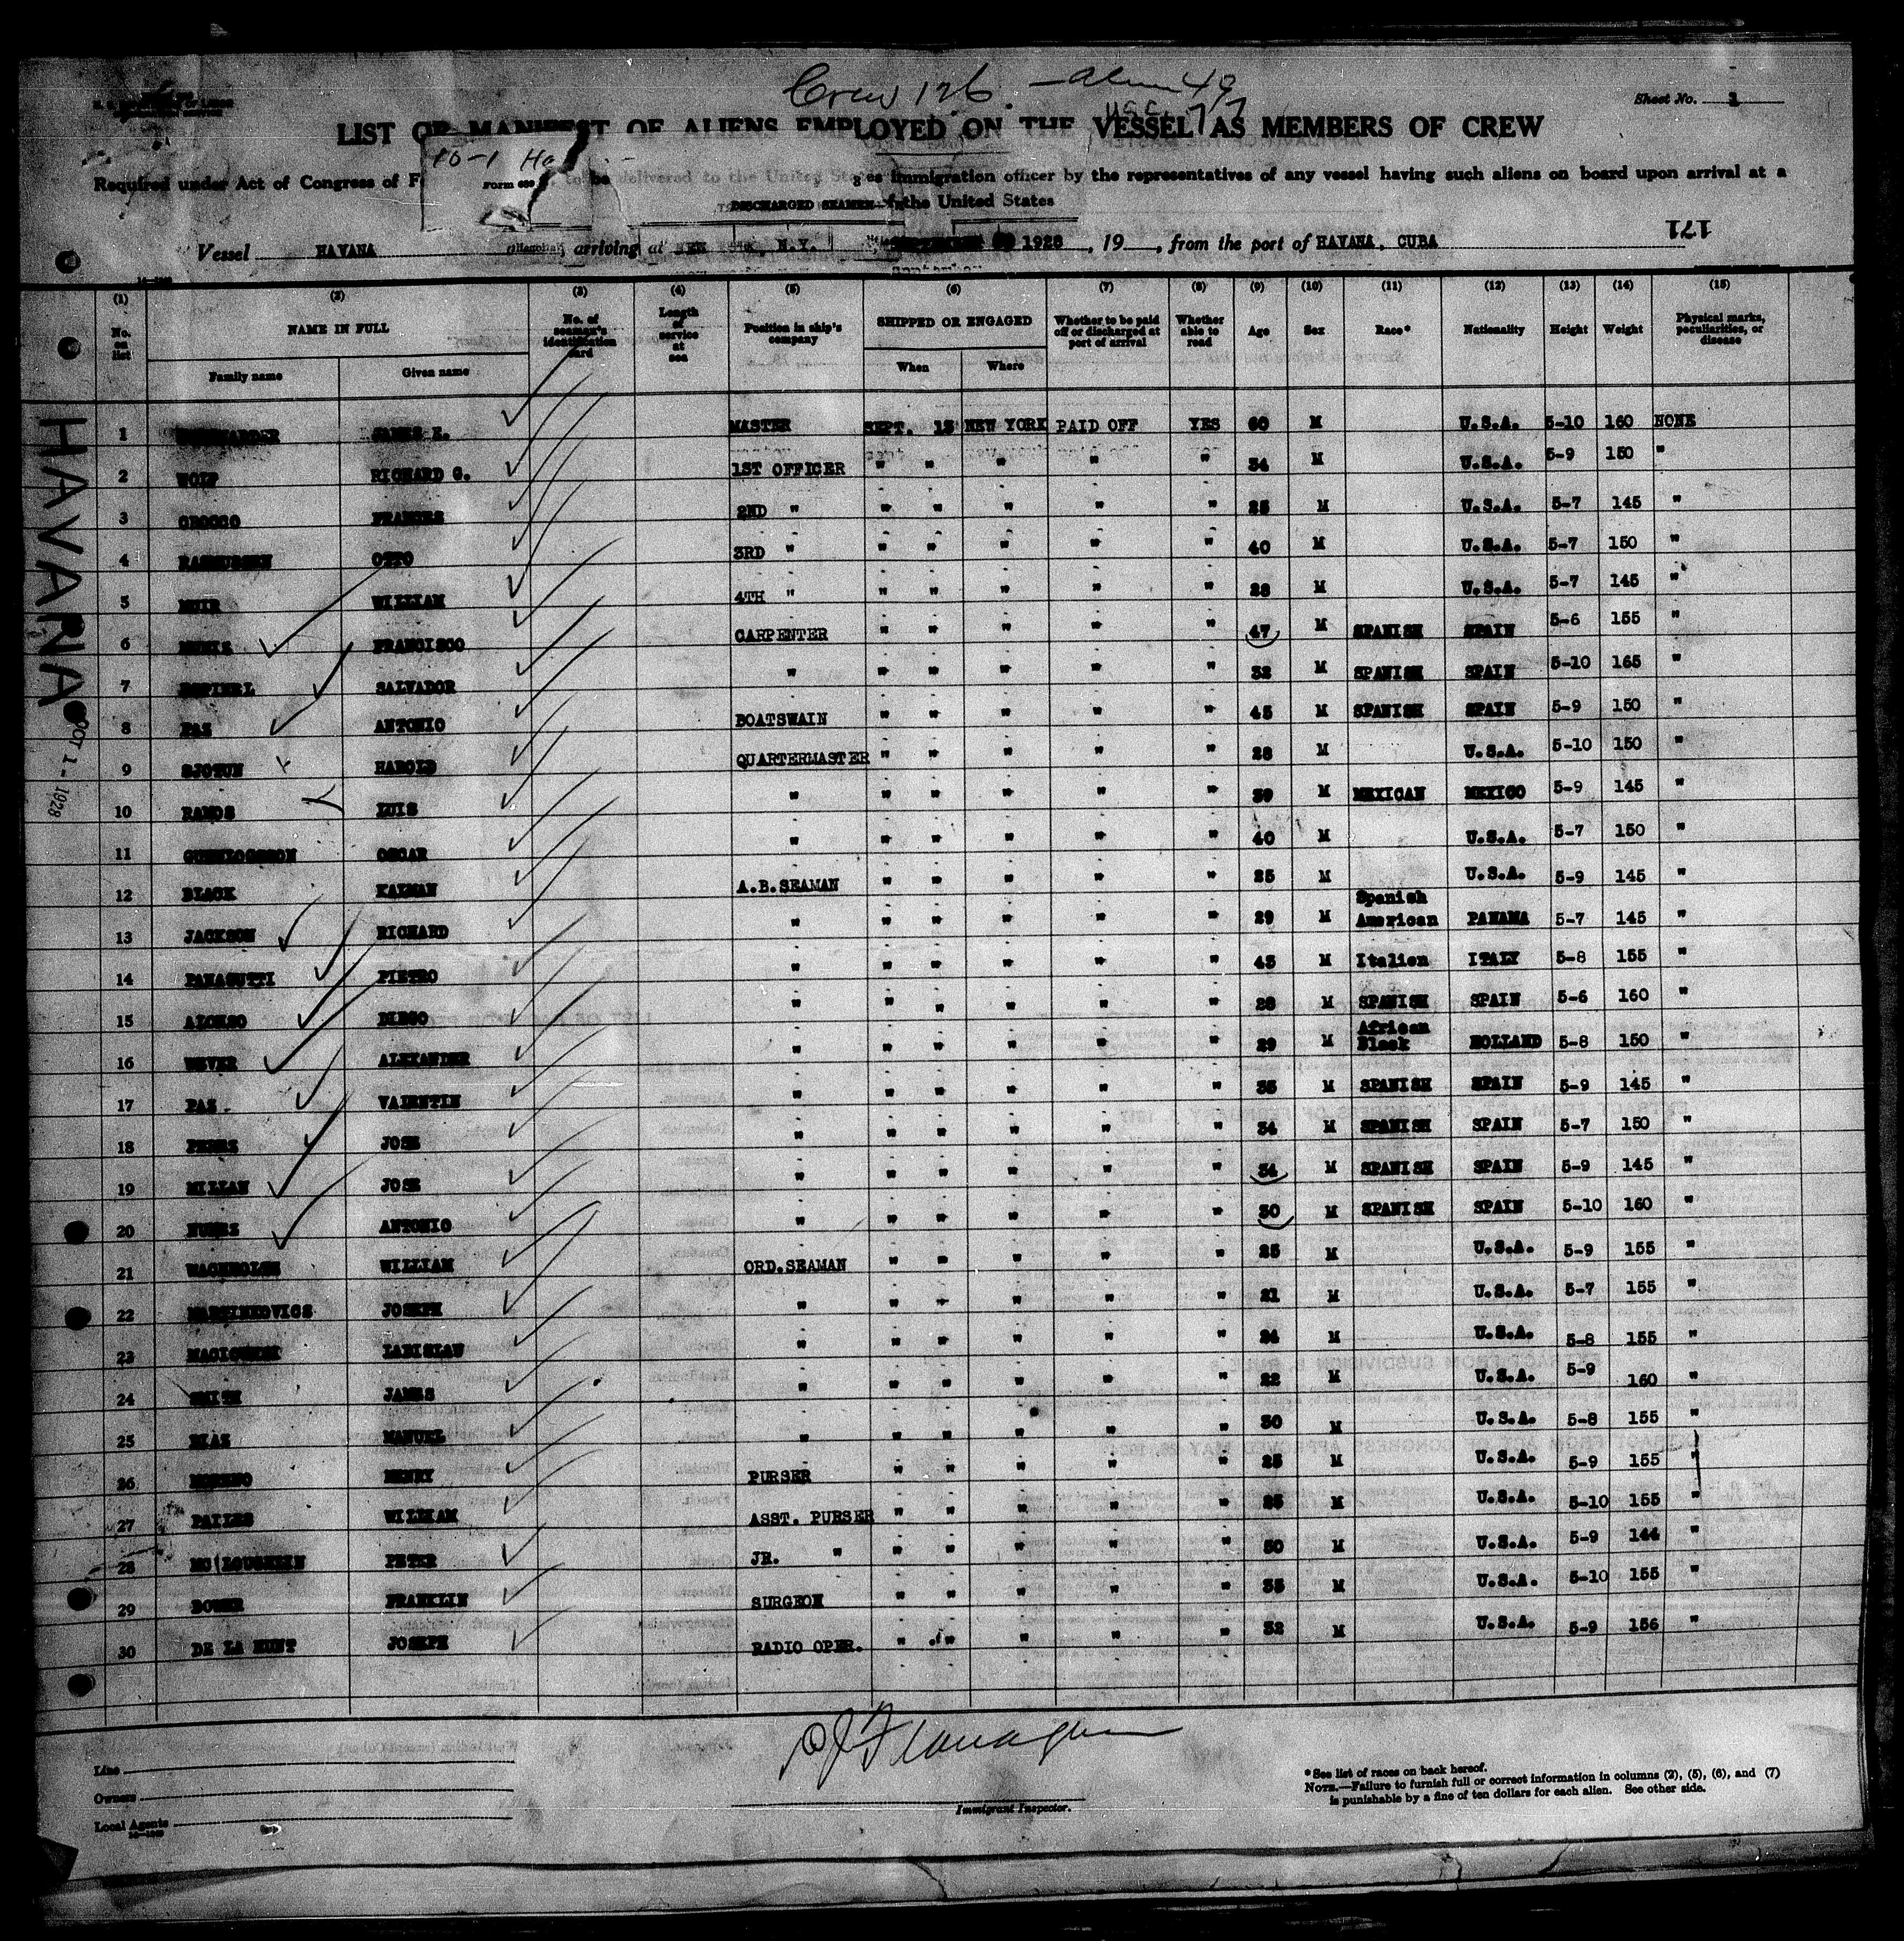 Crew 126. - alien 49
U.S.C. 77
Sheet No. 1
LIST OR MANIFEST OF ALIENS EMPLOYED ON THE VESSEL AS MEMBERS OF CREW
10-1 Ha
Required under Act of Congress of to be delivered to the United States immigration officer by the representatives of any vessel having such aliens on board upon arrival at a
DISCHARGED SEAMEN the United States
Vessel HAVANA, arriving at NEW N.Y. 1928, 19, from the port of HAVANA, CUBA
171
(1) (2) (3) (4) (5) (6) (7) (8) (9) (10) (11) (12) (13) (14) (15)
No. on list
NAME IN FULL
Family name Given name
No. of seaman's identification card
Length of service at sea
Position in ship's company
SHIPPED OR ENGAGED
When Where
Whether to be paid off or discharged at port of arrival
Whether able to read
Age Sex Race* Nationality Height Weight
Physical marks, peculiarities, or disease
HAVANA
OCT 1 - 1928
1 JAMES E. MASTER SEPT. 15 NEW YORK PAID OFF YES 60 M U.S.A. 5-10 160 NONE
2 WOLF RICHARD G. 1ST OFFICER " " " " " 34 M U.S.A. 5-9 150 "
3 CROCCO 2ND " " " " " " 25 M U.S.A. 5-7 145 "
4 RASMUSSEN OTTO 3RD " " " " " " 40 M U.S.A. 5-7 150 "
5 MUIR WILLIAM 4TH " " " " " " 28 M U.S.A. 5-7 145 "
6 FRANCISCO CARPENTER " " " " " 47 M SPANISH SPAIN 5-6 155 "
7 ESPINEL SALVADOR " " " " " " 32 M SPANISH SPAIN 5-10 165 "
8 PAZ ANTONIO BOATSWAIN " " " " " 45 M SPANISH SPAIN 5-9 150 "
9 SJOTUN HAROLD QUARTERMASTER " " " " " 28 M U.S.A. 5-10 150 "
10 RAMOS LUIS " " " " " " 39 M MEXICAN MEXICO 5-9 145 "
11 OSCAR " " " " " " 40 M U.S.A. 5-7 150 "
12 BLACK KALMAN A.B.SEAMAN " " " " " 25 M U.S.A. 5-9 145 "
13 JACKSON RICHARD " " " " " " 29 M Spanish American PANAMA 5-7 145 "
14 PANAGUTTI PIETRO " " " " " " 43 M Italien ITALY 5-8 155 "
15 ALONSO DIEGO " " " " " " 28 M SPANISH SPAIN 5-6 160 "
16 WEVER ALEXANDER " " " " " " 29 M African Black HOLLAND 5-8 150 "
17 PAZ VALENTIN " " " " " " 35 M SPANISH SPAIN 5-9 145 "
18 PEREZ JOSE " " " " " " 34 M SPANISH SPAIN 5-7 150 "
19 MILLAN JOSE " " " " " " 34 M SPANISH SPAIN 5-9 145 "
20 NUNEZ ANTONIO " " " " " " 30 M SPANISH SPAIN 5-10 160 "
21 WACHHOLZ WILLIAM ORD.SEAMAN " " " " " 25 M U.S.A. 5-9 155 "
22 JOSEPH " " " " " " 21 M U.S.A. 5-7 155 "
23 LADISLAU " " " " " " 24 M U.S.A. 5-8 155 "
24 SMITH JAMES " " " " " " 22 M U.S.A. 5-9 160 "
25 DIAZ MANUEL " " " " " " 30 M U.S.A. 5-8 155 "
26 MORENO HENRY PURSER " " " " " 25 M U.S.A. 5-9 155 "
27 WILLIAM ASST. PURSER " " " " " M U.S.A. 5-10 155 "
28 MC LOUGHLIN PETER JR. " " " " " " 50 M U.S.A. 5-9 144 "
29 BOWER FRANKLIN SURGEON " " " " " 35 M U.S.A. 5-10 155 "
30 DE LA HUNT JOSEPH RADIO OPER. " " " " " 32 M U.S.A. 5-9 156 "
Flanagan
Immigrant Inspector.
Line
Owners
Local Agents
* See list of races on back hereof.
NOTE.—Failure to furnish full or correct information in columns (2), (5), (6), and (7)
is punishable by a fine of ten dollars for each alien. See other side.